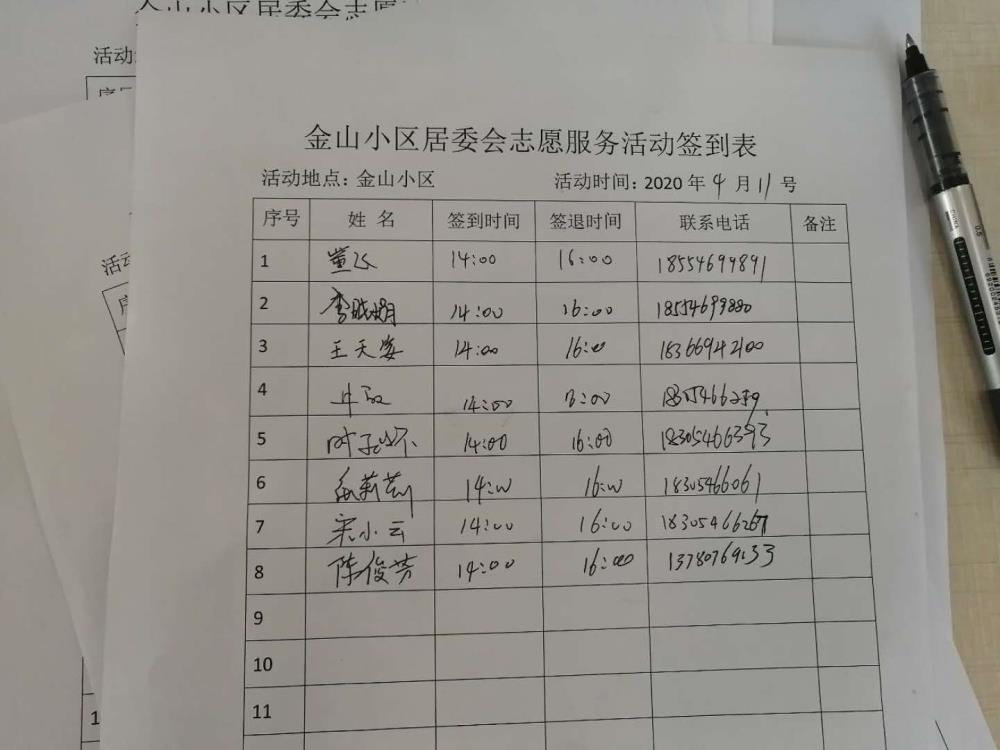 活动
序
活动
序
1
金山小区居委会志愿服务活动签到表
活动地点：金山小区 活动时间：2020 年 4 月 11 号
序号 姓 名 签到时间 签退时间 联系电话 备注
1 董飞 14:00 16:00 18554699891
2 李晓娟 14:00 16:00 18554699880
3 王天姿 14:00 16:00 18366942100
4 14:00
5 14:00 16:00 18305466393
6 14:00 16:00 18305466061
7 宋小云 14:00 16:00 18305466267
8 陈俊芳 14:00 16:00
9
10
11